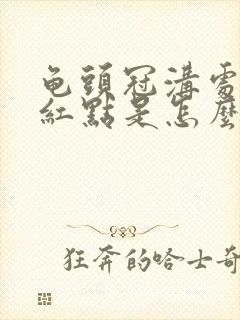 龟頭冠溝處
紅點是怎麽
狂奔的哈士奇